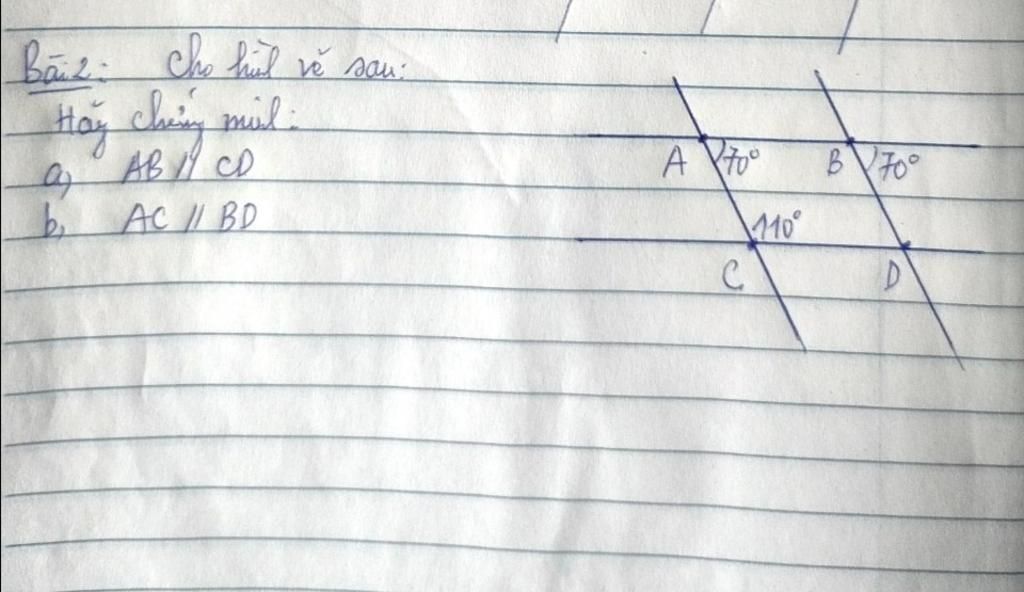 Bài 2: Cho hình vẽ sau:
Hãy chứng minh:
a, AB // CD
b, AC // BD
A 70° B 70°
110°
C D